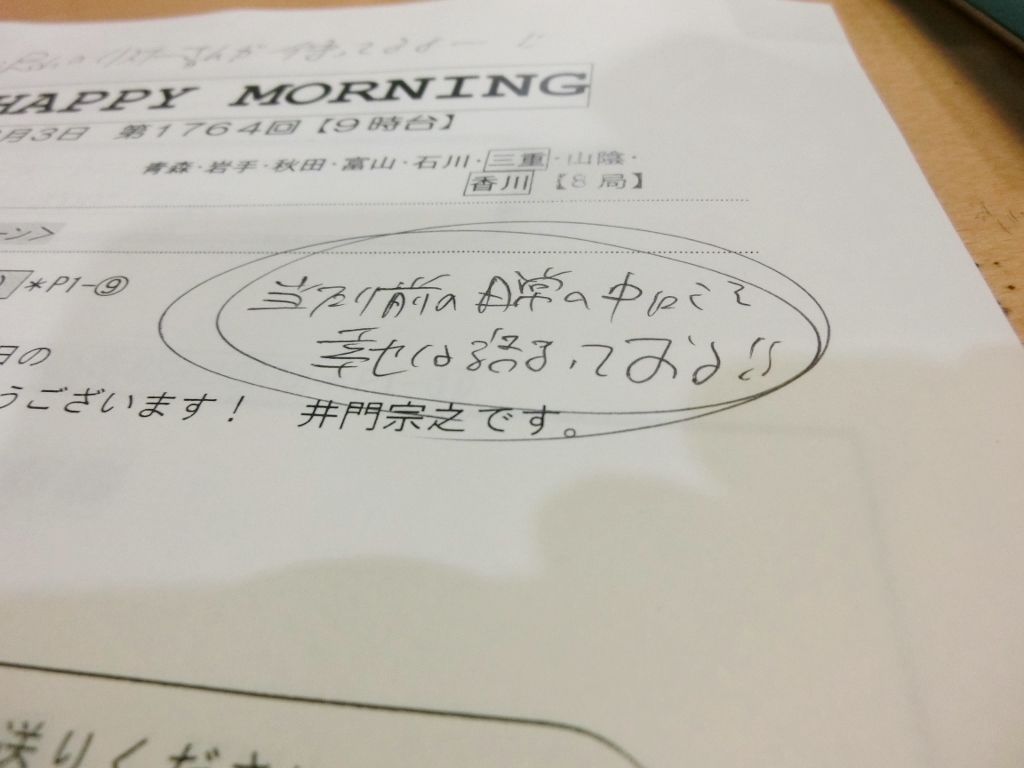 HAPPY MORNING
月3日 第1764回【9時台】
青森・岩手・秋田・富山・石川・三重・山陰・
香川 【8局】
ーン〉
*P1-⑨
当たり前の日常の中にこそ
日の
幸せは詰まっておる!!
うございます! 井門宗之です。
送りくださ